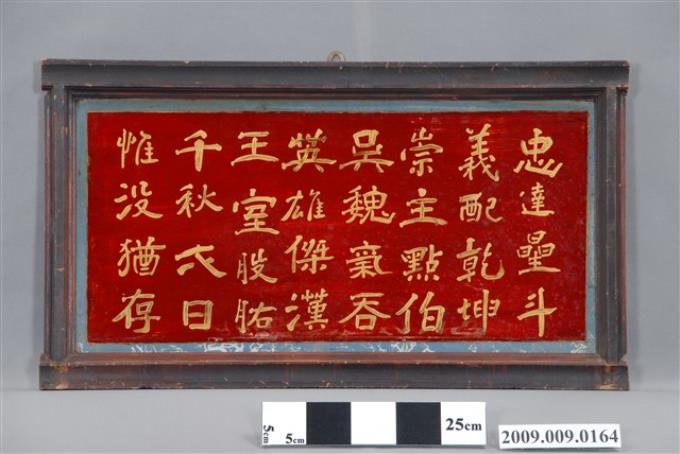 忠達星斗
義配乾坤
崇主點伯
吳魏氣吞
英雄傑漢
王室股
千秋日
惟没猶存
5cm 5cm 25cm
2009.009.0164